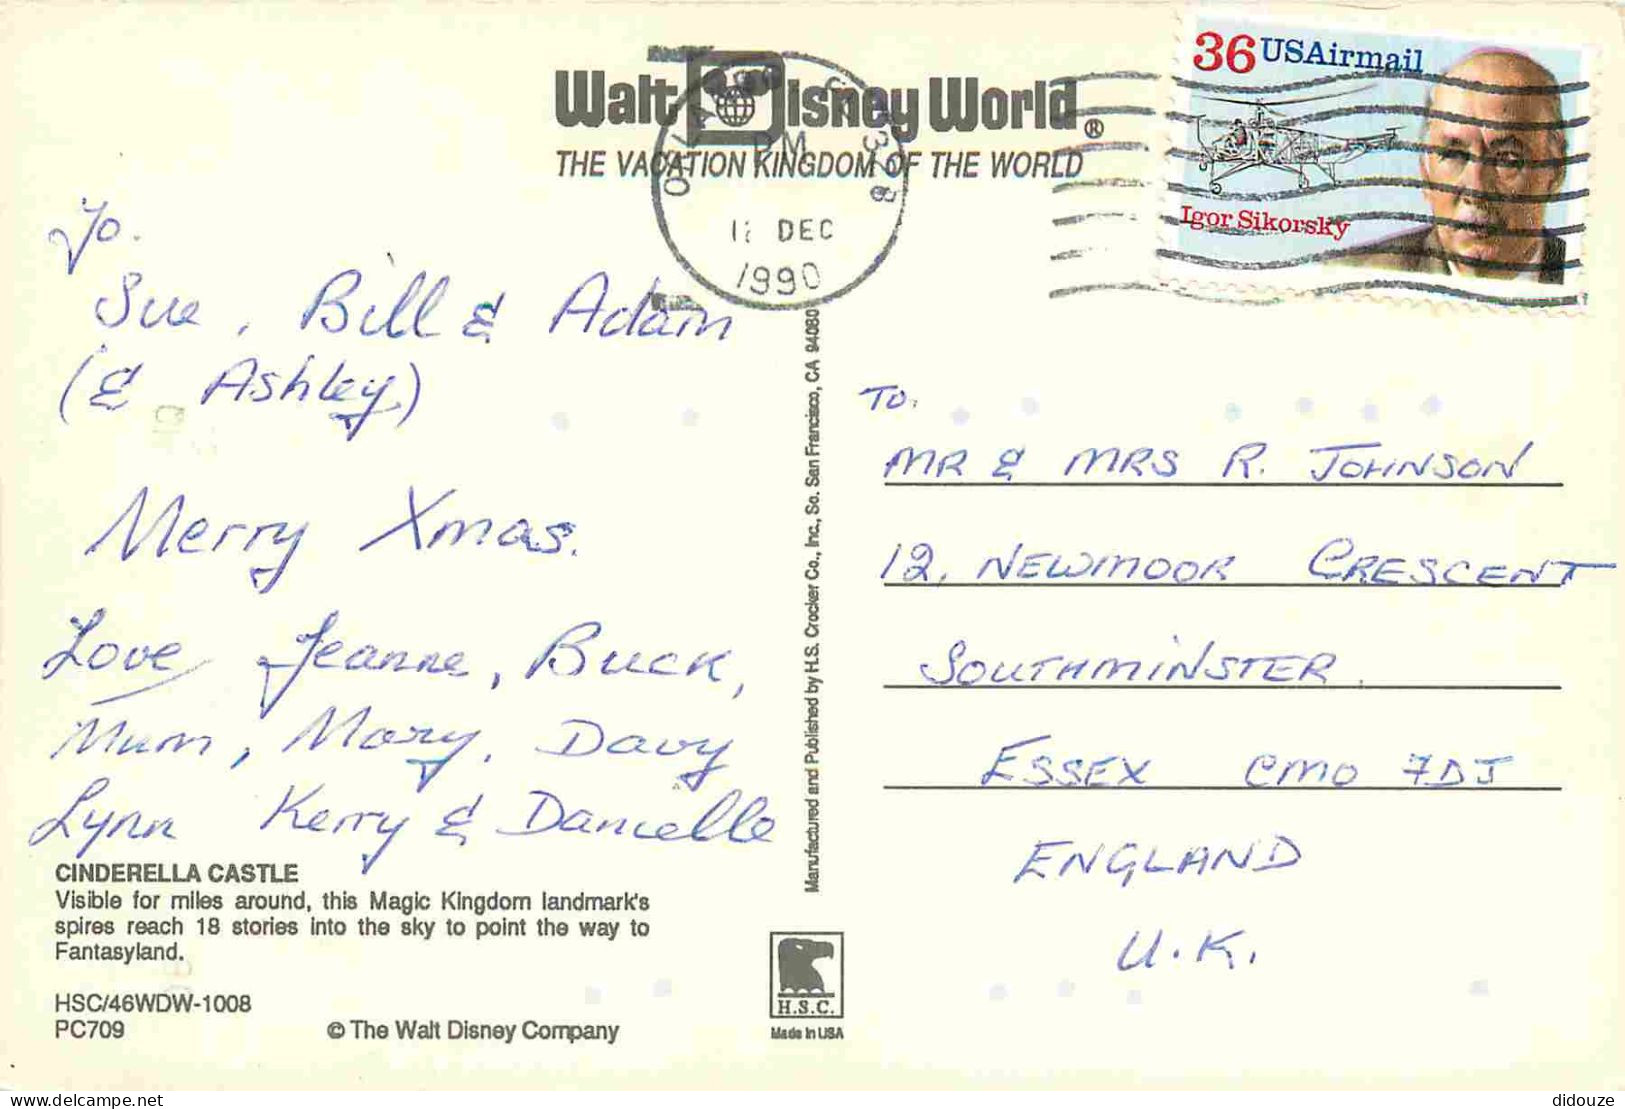 Walt Disney World®
THE VACATION KINGDOM OF THE WORLD
PM
DEC
1990
36 USAirmail
Igor Sikorsky
To.
Sue, Bill & Adam
(& Ashley)
Merry Xmas.
Love Jeanne, Buck,
Mum, Mary, Davy
Lynn Kerry & Danielle
CINDERELLA CASTLE
Visible for miles around, this Magic Kingdom landmark's
spires reach 18 stories into the sky to point the way to
Fantasyland.
HSC/46WDW-1008
PC709
© The Walt Disney Company
Manufactured and Published by H.S. Crocker Co., Inc., So. San Francisco, CA 94080
H.S.C.
Made in USA
TO.
MR & MRS R. JOHNSON
12, NEWMOOR CRESCENT
SOUTHMINSTER.
ESSEX CMO 7DJ
ENGLAND
U.K.
didouze